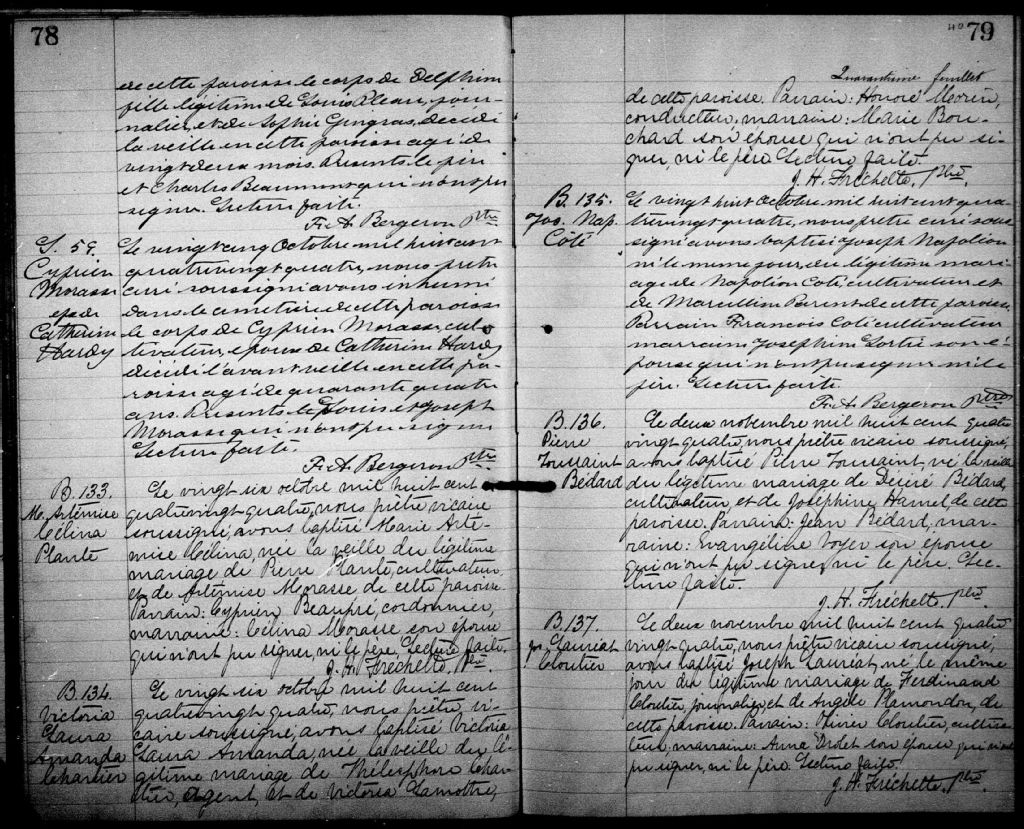 78
de cette paroisse le corps de Delphine
fille légitime de Louis Plean, jour-
nalier, et de Sophie Gingras, décédé
la veille en cette paroisse agé de
vingt deux mois. Présents le père
et Charles Beaumont qui n'ont pu
signer. Lecture faite.
Fr. A. Bergeron ptre
S. 59.
Cyprien
Morasse
epx de
Catherine
Hardy
Le vingt cinq Octobre mil huit cent
quatre vingt quatre, nous pretre
curé soussigné avons inhumé
dans le cimetière de cette paroisse
le corps de Cyprien Morasse, cul-
tivateur, epoux de Catherine Hardy
décédé l'avant veille en cette pa-
roisse agé de quarante quatre
ans. Présents Louis et Joseph
Morasse qui n'ont pu signer
Lecture faite.
Fr. A. Bergeron ptre
B. 133.
M. Artémise
Célina
Planté
Le vingt six octobre mil huit cent
quatrevingt-quatre, nous prêtre vicaire
soussigné, avons baptisé Marie Arté-
mise Célina, née la veille du légitime
mariage de Pierre Planté, cultivateur,
et de Artémise Morasse de cette paroisse.
Parrain: Cyprien Beaupré, cordonnier,
marraine: Célina Morasse son épouse
qui n'ont pu signer, ni le père. Lecture faite.
J. H. Fréchette, Ptre.
B. 134.
Victoria
Laura
Amanda
Chartier
Le vingt six octobre mil huit cent
quatrevingt quatre, nous prêtre vi-
caire soussigné, avons baptisé Victoria
Laura Amanda, née la veille du lé-
gitime mariage de Thélesphore Char-
tier, agent, et de Victoria Lamothe,
40 79
Quarantième feuillet
de cette paroisse. Parrain: Honoré Morin,
conducteur, marraine: Marie Bou-
chard son épouse qui n'ont pu si-
gner, ni le père. Lecture faite.
J. H. Fréchette, Ptre.
B. 135.
Jos. Nap.
Côté
Le vingt huit Octobre mil huit cent qua-
tre vingt quatre, nous pretre curé sous-
signé avons baptisé Joseph Napoléon
né le meme jour, du légitime mari-
age de Napoléon Coté cultivateur et
de Marcelline Parent de cette paroisse
Parrain Francois Coté cultivateur
marraine Josephine Lortie son é-
pouse qui n'ont pu signer ni le
père. Lecture faite.
Fr. A. Bergeron ptre
B. 136.
Pierre
Toussaint
Bédard
Le deux novembre mil huit cent quatre
vingt-quatre, nous prêtre vicaire soussigné,
avons baptisé Pierre Toussaint, né la veille
du légitime mariage de Désiré Bédard,
cultivateur, et de Joséphine Hamel, de cette
paroisse. Parrain: Jean Bédard, mar-
raine: Evangéline Voyer son épouse
qui n'ont pu signer, ni le père. Lec-
ture faite.
J. H. Fréchette, Ptre.
B. 137.
Jos. Lauréat
Cloutier
Le deux novembre mil huit cent quatre
vingt-quatre, nous prêtre vicaire soussigné,
avons baptisé Joseph Lauréat, né le même
jour du légitime mariage de Ferdinand
Cloutier, journalier, et de Angèle Plamondon, de
cette paroisse. Parrain: Olivier Cloutier, cultiva-
teur, marraine: Anna Drolet son épouse qui n'ont
pu signer, ni le père. Lecture faite.
J. H. Fréchette, Ptre.